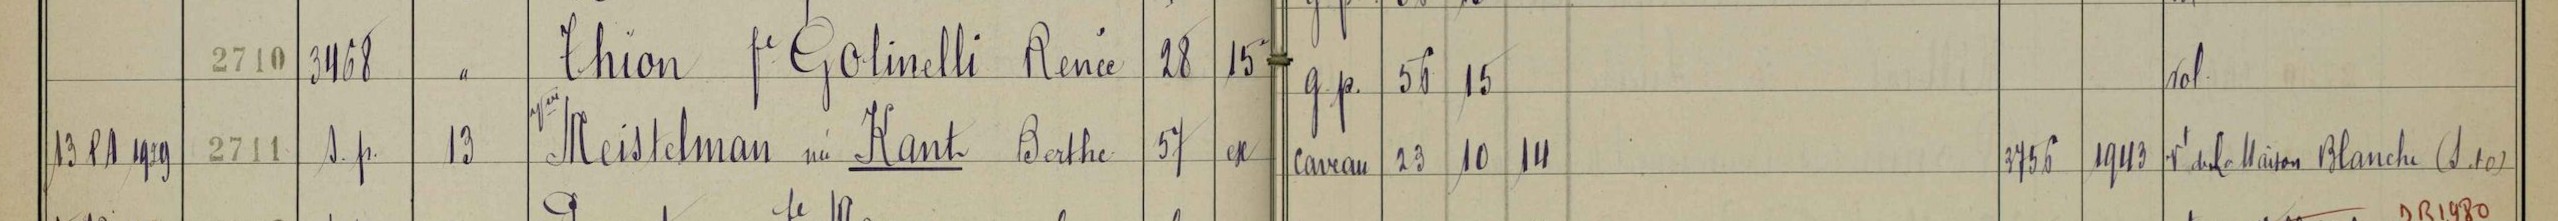 2710 3468 " Thion fe Golinelli Renée 28 15 g.p. 56 15
13 PA 1929 2711 s.p. 13 Meistelman née Kant Berthe 57 ex caveau 23 10 14 3756 1943 de la Maison Blanche
DB1980